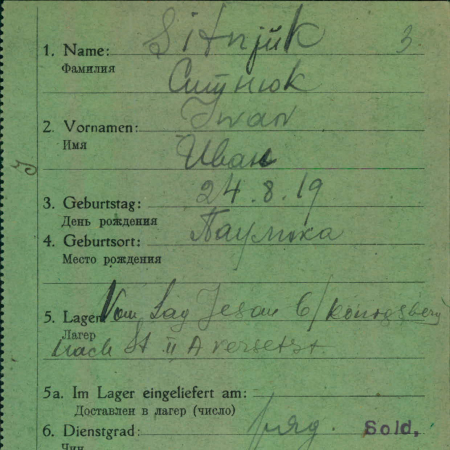 Sitnjuk 3.
1. Name:
Фамилия
Ситнюк
Iwan
2. Vornamen:
Имя
Иван
24.8.19
3. Geburtstag:
День рождения
4. Geburtsort:
Место рождения
5. Lager Vom Lag Jesau 6/Königsberg
Лагер
nach St II A versetzt
5a. Im Lager eingeliefert am:
Доставлен в лагер (число)
6. Dienstgrad: ряд. Sold.
Чин